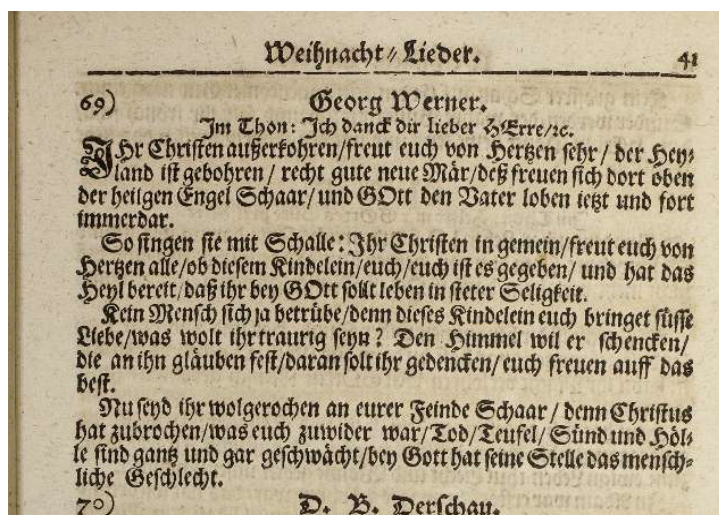 Weihnacht-Lieder. 41
69) Georg Werner.
Im Thon: Ich danck dir lieber HErre/ꝛc.
IHr Christen außerkohren/freut euch von Hertzen sehr/ der Hey-
land ist gebohren/ recht gute neue Mär/deß freuen sich dort oben
der heilgen Engel Schaar/ und GOtt den Vater loben ietzt und fort
immerdar.
So singen sie mit Schalle: Ihr Christen in gemein/freut euch von
Hertzen alle/ob diesem Kindelein/euch/euch ist es gegeben/ und hat das
Heyl bereit/daß ihr bey GOtt sollt leben in steter Seligkeit.
Kein Mensch sich ja betrübe/denn dieses Kindelein euch bringet süsse
Liebe/was wolt ihr traurig seyn? Den Himmel wil er schencken/
die an ihn gläuben fest/daran solt ihr gedencken/ euch freuen auff das
best.
Nu seyd ihr wolgerochen an eurer Feinde Schaar/ denn Christus
hat zubrochen/was euch zuwider war/Tod/Teufel/ Sünd und Höl-
le sind gantz und gar geschwächt/bey Gott hat seine Stelle das mensch-
liche Geschlecht.
70) D. B. Derschau.